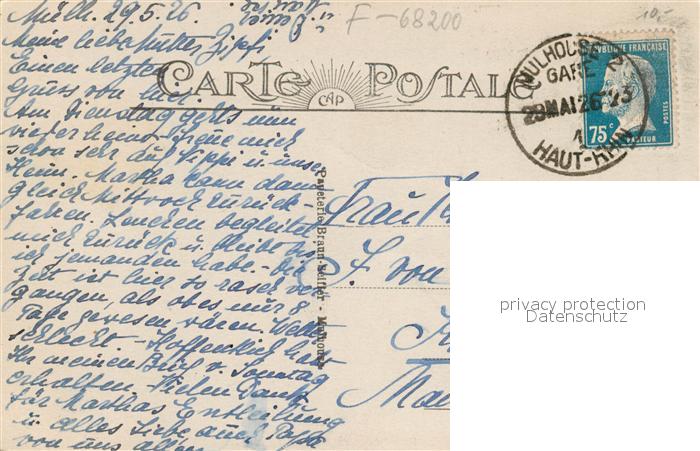 Mülh. 29.5.26
Meine liebe Mutter, Zippi
Einen letzten
Gruss von hier.
Am Dienstag gehts nun
wieder heim. Freue mich
schon sehr auf Zippi u. unser
Heim. Martha kann dann
gleich Mittwoch zurück-
fahren. Lenchen begleitet
mich zurück u. bleibt bis
ich jemanden habe. Die
Zeit ist hier so rasch ver
gangen, als ob es nur 8
Tage gewesen wären. Wetter
schlecht. Hoffentlich habt
Ihr meinen Brief v. Sonntag
erhalten. Vielen Dank
für Marthas Entleihung
u. alles Liebe auch Papa
von uns allen
F-68200
10,-
CARTE POSTALE
CAP
RÉPUBLIQUE FRANÇAISE
POSTES
75c
PASTEUR
MULHOUSE
GARE
29 MAI 26
HAUT-RHIN
Papeterie Braun - Mulhouse
Frau
F. von
privacy protection
Datenschutz